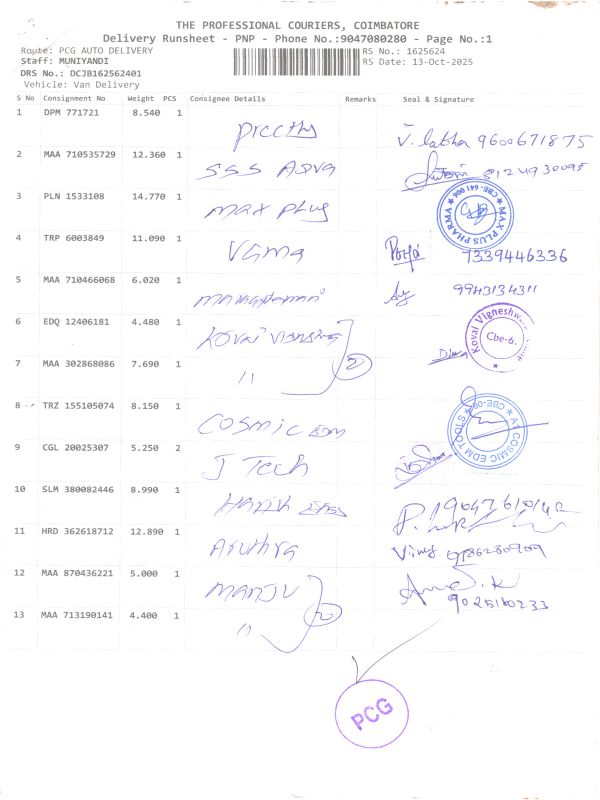 THE PROFESSIONAL COURIERS, COIMBATORE
Delivery Runsheet - PNP - Phone No.:9047080280 - Page No.:1
Route: PCG AUTO DELIVERY
RS No.: 1625624
Staff: MUNIYANDI
RS Date: 13-Oct-2025
DRS No.: DCJB162562401
Vehicle: Van Delivery
S No Consignment No Weight PCS Consignee Details Remarks Seal & Signature
1 DPM 771721 8.540 1
V. Latha 9600671875
2 MAA 710535729 12.360 1
SSS
8124930095
3 PLN 1533108 14.770 1
max plus
MAX PLUS PHARMA CBE-641 006
4 TRP 6003849 11.090 1
VGMG
7339446336
5 MAA 710466068 6.020 1
9943134311
6 EDQ 12406181 4.480 1
KOVAI
Kovai Vigneshw
Cbe-6.
7 MAA 302868086 7.690 1
11
2
8 TRZ 155105074 8.150 1
COSMIC EDM
COSMIC EDM TOOLS
9 CGL 20025307 5.250 2
J Tech
10 SLM 380082446 8.990 1
11 HRD 362618712 12.890 1
Aruthra
12 MAA 870436221 5.000 1
MANJU
13 MAA 713190141 4.400 1
11
2
9025110233
PCG